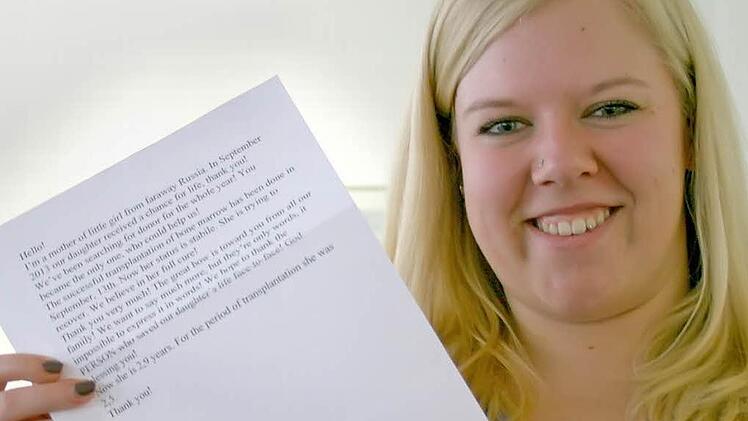 Hello!
I'm a mother of little girl from faraway Russia. In September
2013 our daughter received a chance for life, thank you!
We've been searching for donor for the whole year! You
became the only one, who could help us!
The successful transplantation of bone marrow has been done in
September, 13th. Now her status is stabile. She is trying to
recover. We believe in her full cure!
Thank you very much! The great bow is toward you from all our
family! We want to say much more, but they're only words, it
impossible to express it in words! We hope to thank the
PERSON who saved our daughter a life face-to-face! God
blessing you!
Now she is 2,9 years. For the period of transplantation she was
2,5.
Thank you!